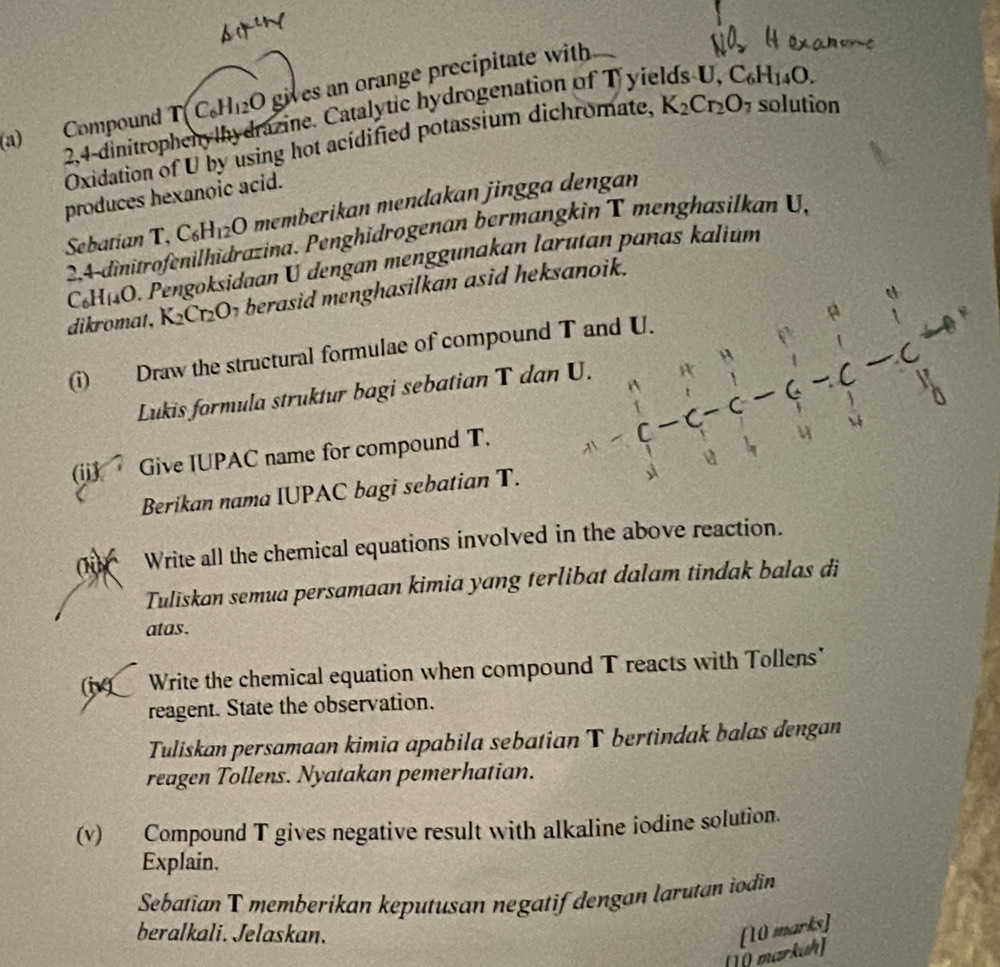 NO₂ Hexanone
(a) Compound T( C₆H₁₂O gives an orange precipitate with
2,4-dinitrophenylhydrazine. Catalytic hydrogenation of T yields U, C₆H₁₄O.
Oxidation of U by using hot acidified potassium dichromate, K₂Cr₂O₇ solution
produces hexanoic acid.
Sebatian T, C₆H₁₂O memberikan mendakan jingga dengan
2,4-dinitrofenilhidrazina. Penghidrogenan bermangkin T menghasilkan U,
C₆H₁₄O. Pengoksidaan U dengan menggunakan larutan panas kalium
dikromat, K₂Cr₂O₇ berasid menghasilkan asid heksanoik.
(i) Draw the structural formulae of compound T and U.
Lukis formula struktur bagi sebatian T dan U.
H H H H H
H - C - C - C - C - C - C
H H H H H O
(ii) Give IUPAC name for compound T.
Berikan nama IUPAC bagi sebatian T.
(iii) Write all the chemical equations involved in the above reaction.
Tuliskan semua persamaan kimia yang terlibat dalam tindak balas di
atas.
(iv) Write the chemical equation when compound T reacts with Tollens'
reagent. State the observation.
Tuliskan persamaan kimia apabila sebatian T bertindak balas dengan
reagen Tollens. Nyatakan pemerhatian.
(v) Compound T gives negative result with alkaline iodine solution.
Explain.
Sebatian T memberikan keputusan negatif dengan larutan iodin
beralkali. Jelaskan.
[10 marks]
[10 markah]